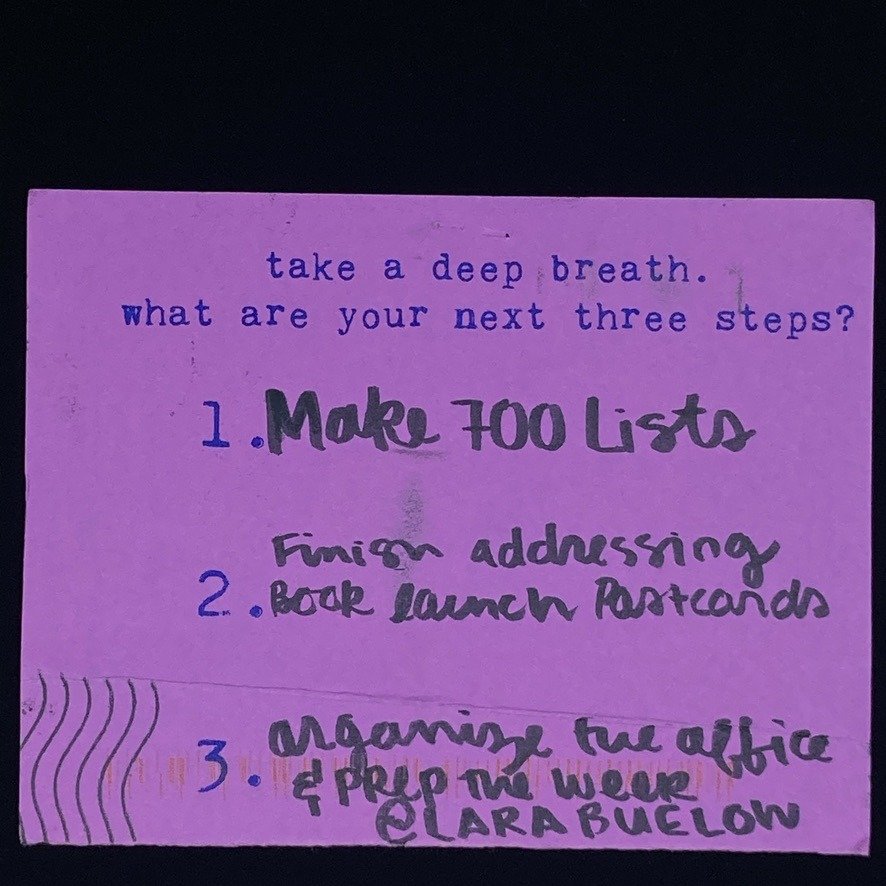 take a deep breath.
what are your next three steps?
1. Make 700 Lists
Finish addressing
2. Book launch Postcards
3. organize the office
& PREP the week
@LARA BUELOW